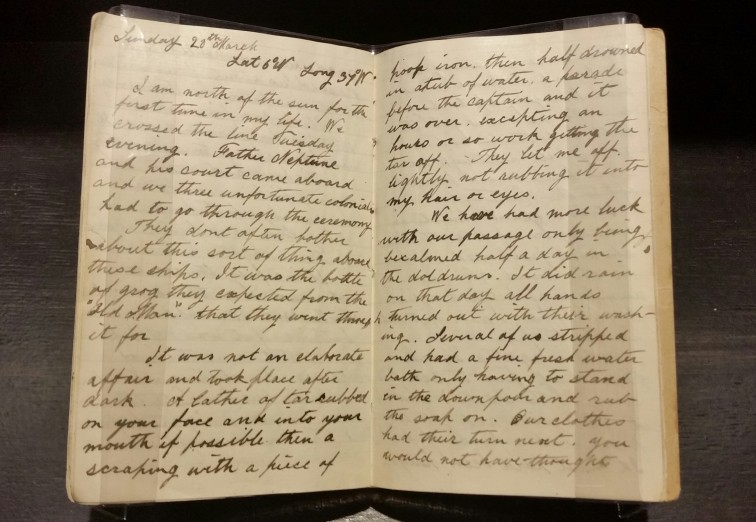 Sunday 20th March
Lat 6°N Long 37°W.
I am north of the sun for th
first time in my life. We
crossed the line Tuesday
evening. Father Neptune
and his court came aboard
and we three unfortunate colonials
had to go through the ceremony
They dont often bother
about this sort of thing aboard
these ships. It was the bottle
of grog they expected from the
"Old Man". that they went through
it for
It was not an elaborate
affair and took place after
dark. A lather of tar rubbed
on your face and into your
mouth if possible then a
scraping with a piece of
hoop iron. then half drowned
in a tub of water. a parade
before the captain and it
was over. excepting an
hours or so work getting the
tar off. They let me off
lightly not rubbing it into
my hair or eyes.
We have had more luck
with our passage only being
becalmed half a day in
the doldrums. It did rain
on that day all hands
turned out with their wash-
ing. Several of us stripped
and had a fine fresh water
bath only having to stand
in the downpour and rub
the soap on. Our clothes
had their turn next. you
would not have thought